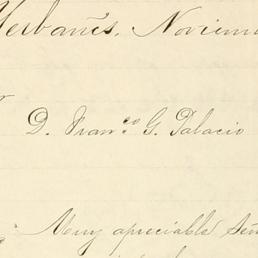 Yerbanís, Noviem
D. Fran.co G. Palacio
Muy apreciable Señ